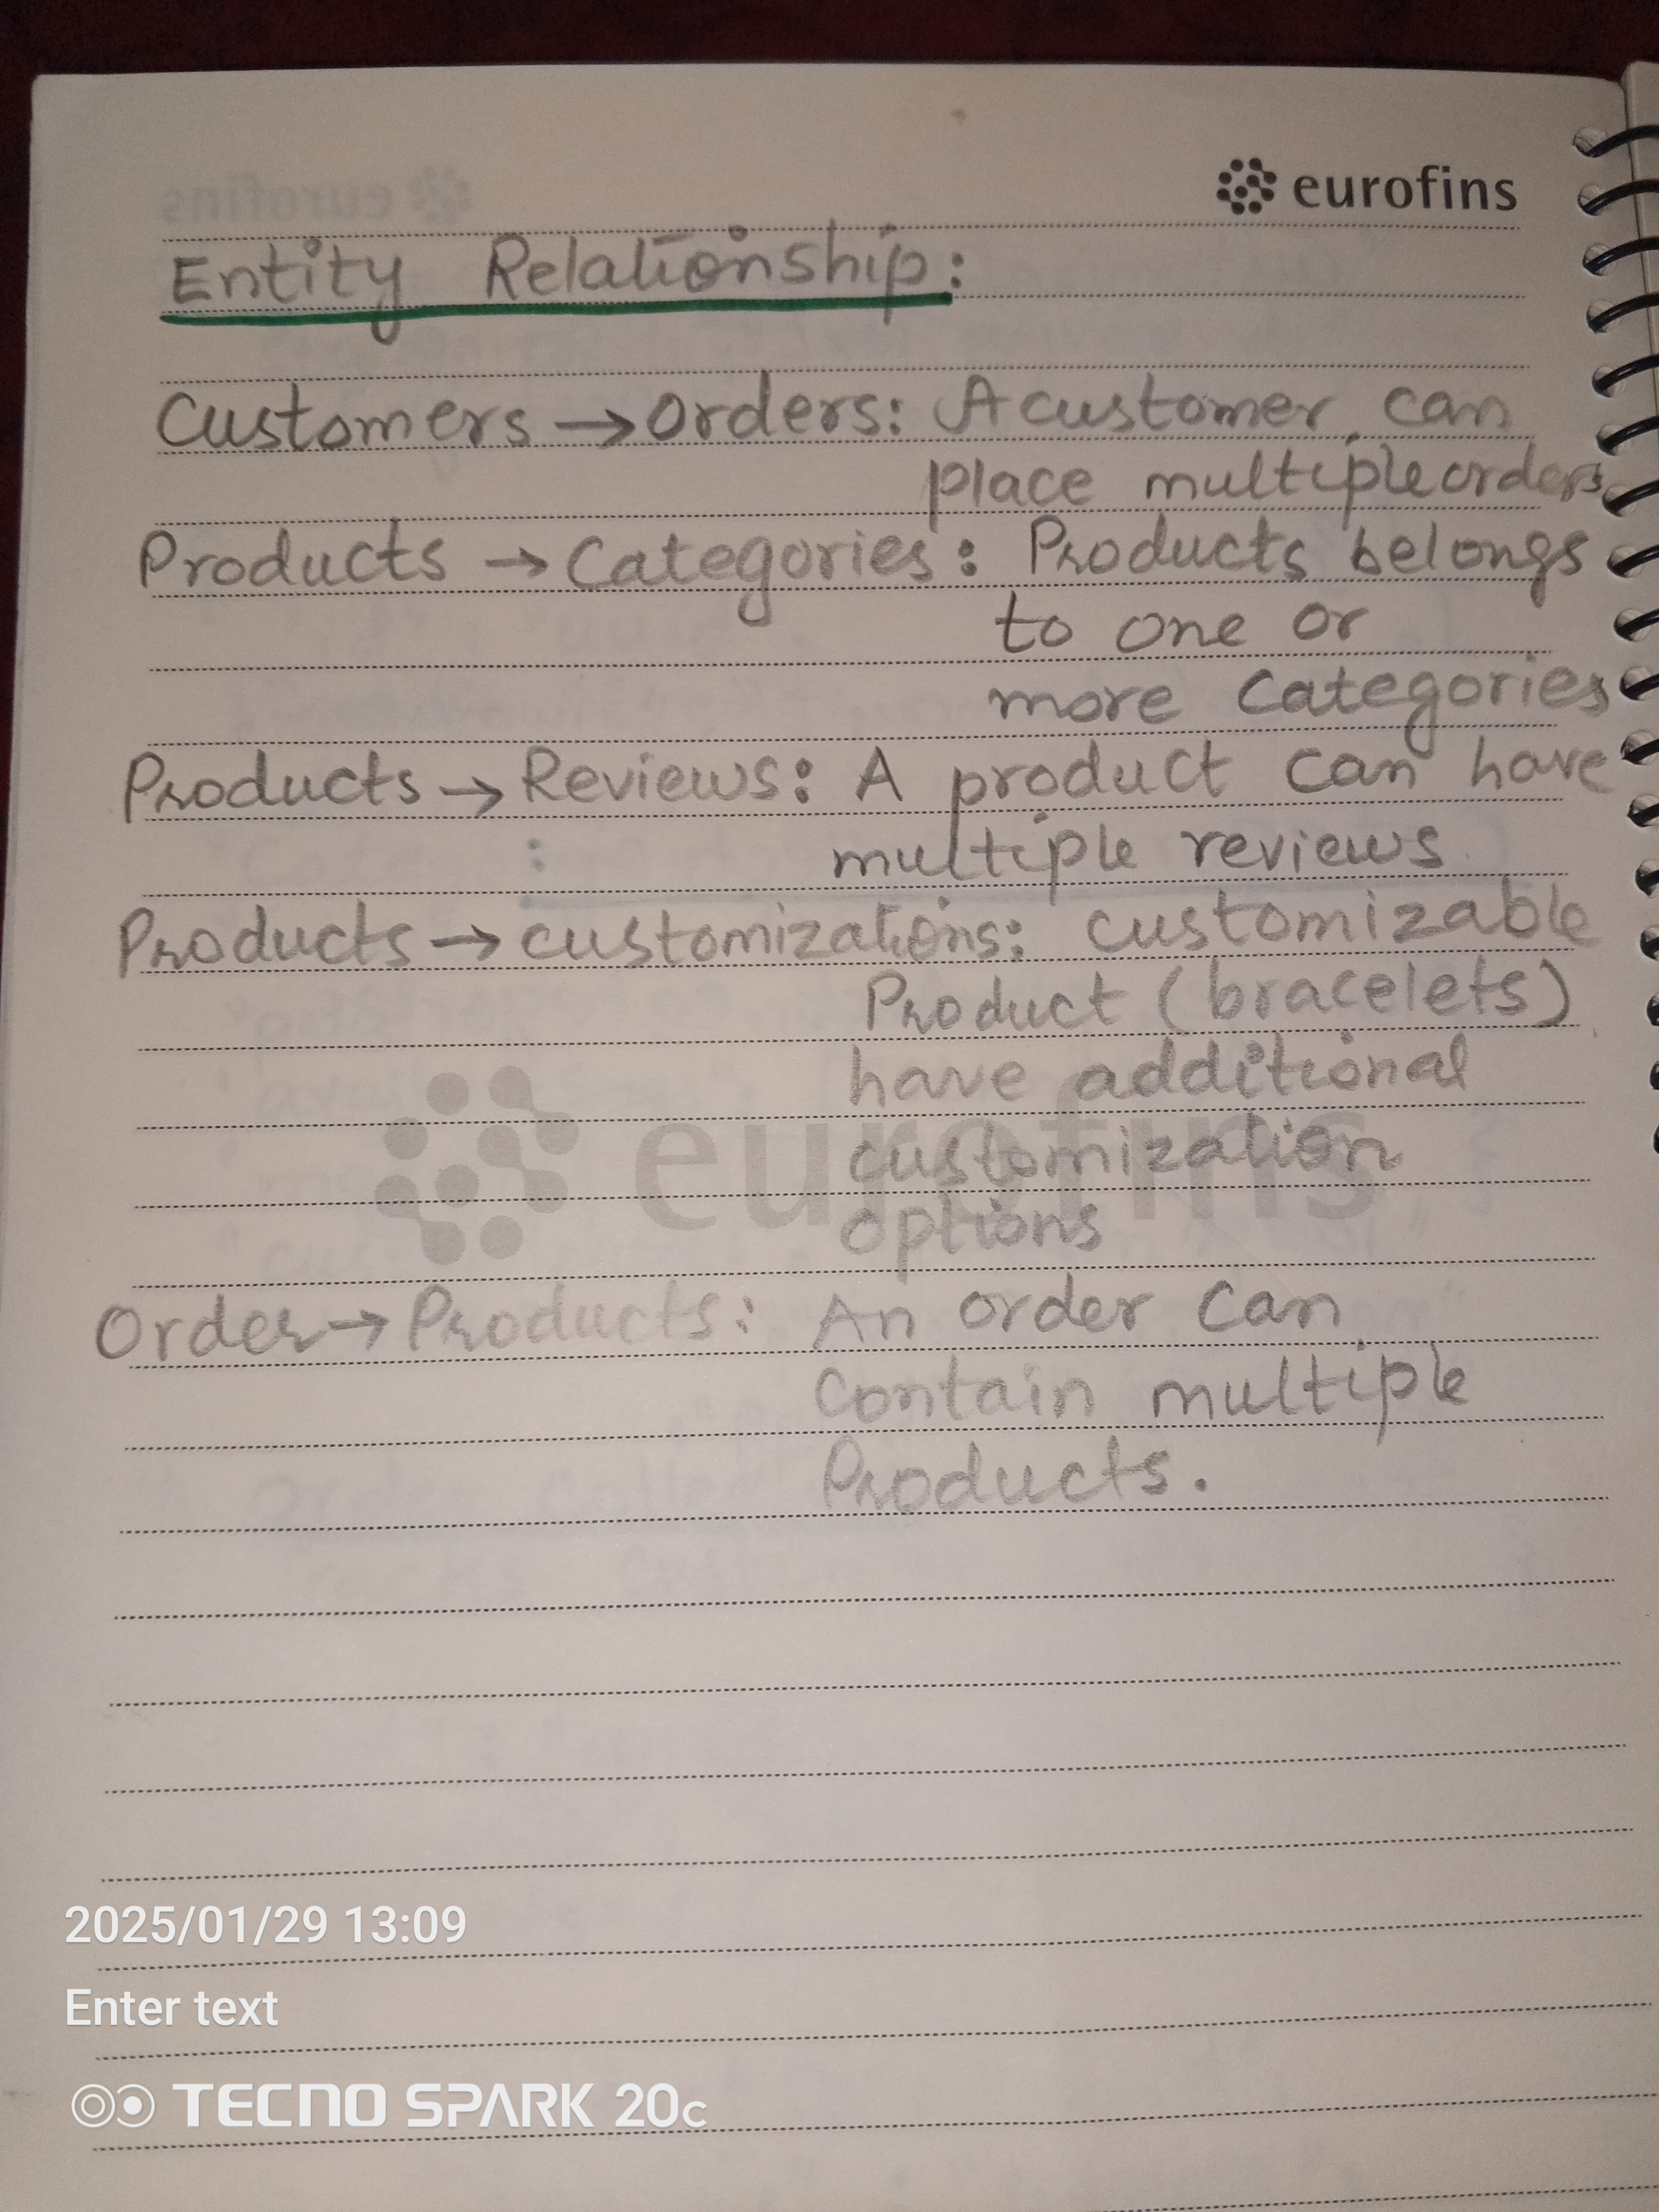 eurofins
Entity Relationship:
Customers → Orders: A customer can
place multiple orders
Products → Categories: Products belongs
to one or
more Categories
Products → Reviews: A product can have
: multiple reviews
Products → customizations: customizable
Product (bracelets)
have additional
customization
options
eurofins
Order → Products: An order can
contain multiple
Products.
2025/01/29 13:09
Enter text
TECNO SPARK 20c